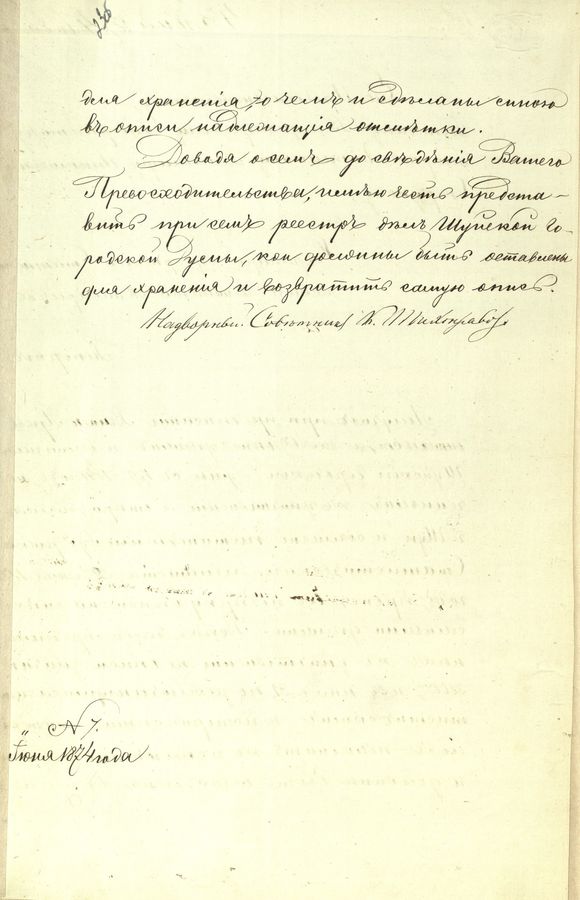 236
для храненія, о чемъ и сдѣланы мною
въ описи надлежащія отмѣтки.
Доводя о семъ до свѣдѣнія Вашего
Превосходительства, имѣю честь предста-
вить при семъ реестръ дѣлъ Шуйской Го-
родской Думы, кои должны быть оставлены
для храненія и возвратить самую опись.
Надворный Совѣтникъ К. Тихонравовъ
N 7.
" Іюня 1874 года